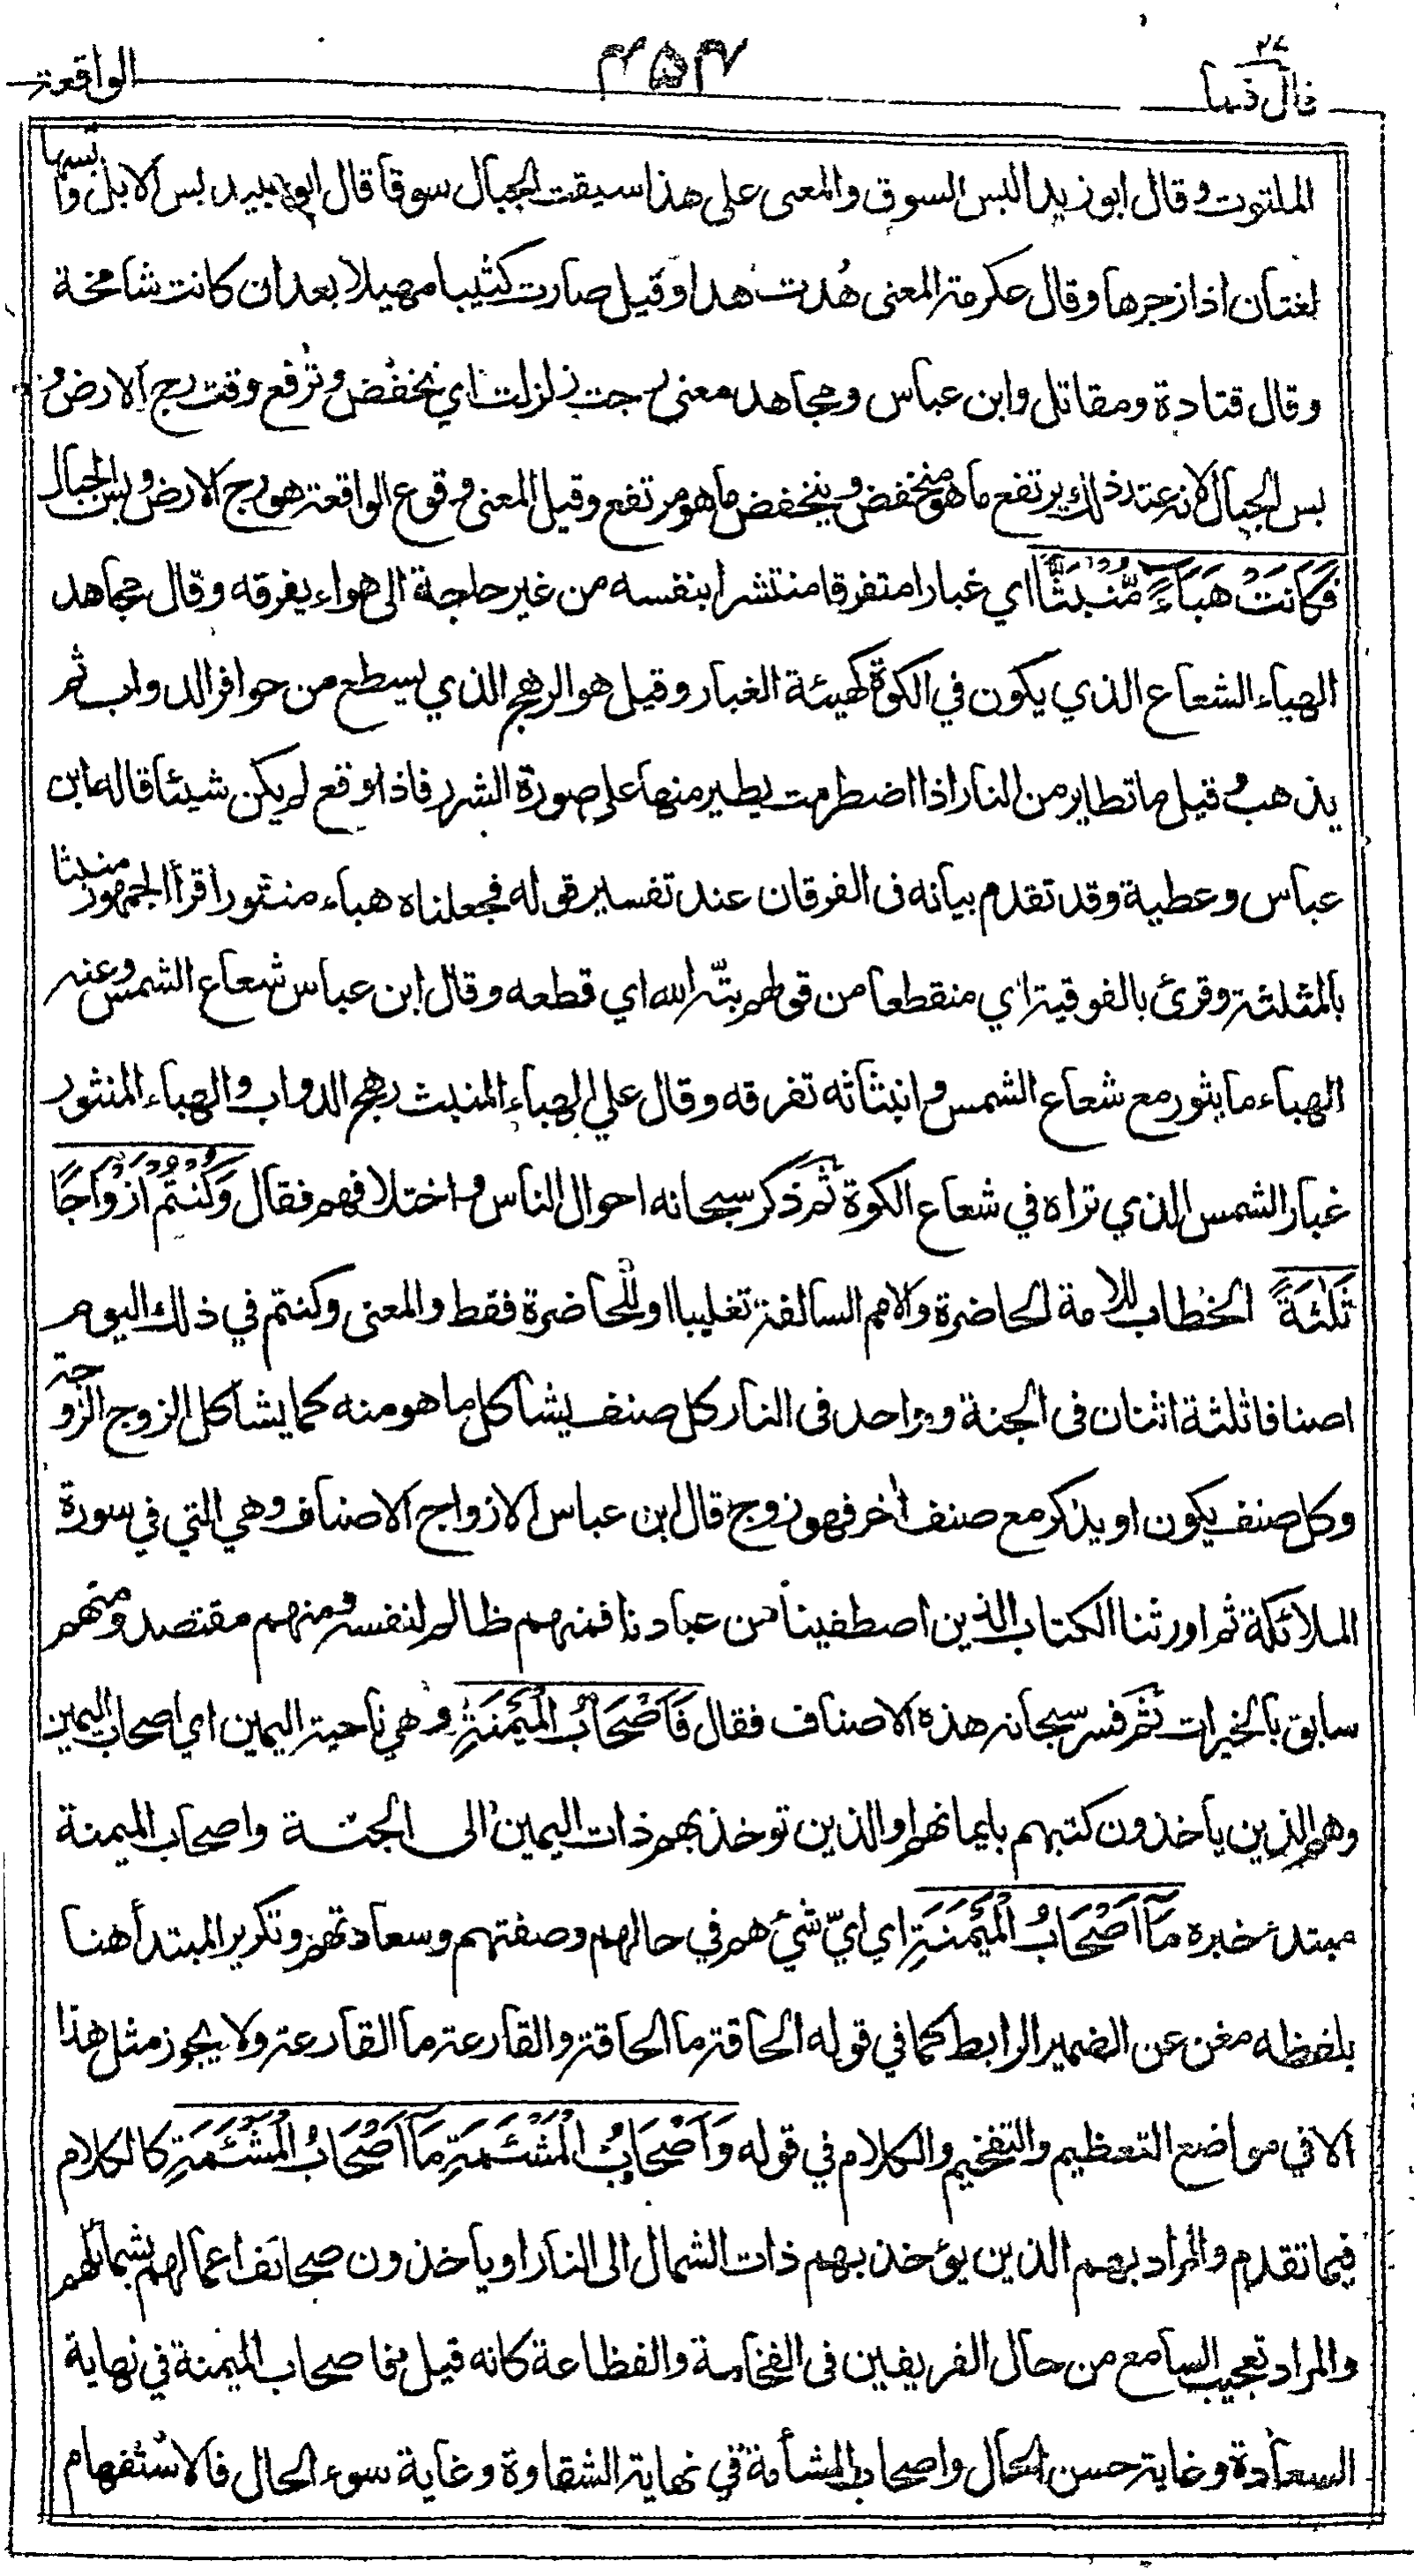 قال فما ٢٧
٤٥٣
الواقعة
الملتوت وقال ابو زيد البس السوق والمعنى على هذا سيقت الجبال سوقا قال ابو عبيد بس الابل وابسها
لغتان اذا زجرها وقال عكرمة المعنى هُدت هدا وقيل صارت كثيبا مهيلا بعد ان كانت شامخة
وقال قتادة ومقاتل وابن عباس ومجاهد معنى رجت زلزلت اي تخفض وتُرفع وقت رج الارض و
بس الجبال لانه عند ذلك يرتفع ما هو منخفض وينخفض ما هو مرتفع وقيل المعنى وقوع الواقعة هو رج الارض وبس الجبال
فَكَانَتْ هَبَآءً مُّنْبَثًّا اي غبارا متفرقا منتشرا بنفسه من غير حاجة الى هواء يفرقه وقال مجاهد
الهباء الشعاع الذي يكون في الكوة كهيئة الغبار وقيل هو الرهج الذي يسطع من حوافر الدواب ثم
يذهب وقيل ما تطاير من النار اذا اضطرمت يطير منها على صورة الشرر فاذا وقع لم يكن شيئا قاله ابن
عباس وعطية وقد تقدم بيانه فى الفرقان عند تفسير قوله فجعلناه هباء منثورا قرأ الجمهور منبثا
بالمثلثة وقرئ بالفوقية اي منقطعا من قولهم بتّه الله اي قطعه وقال ابن عباس شعاع الشمس وعنه
الهباء ما يثور مع شعاع الشمس وانبثاثه تفرقه وقال علي الهباء المنبث رهج الدواب والهباء المنثور
غبار الشمس الذي تراه في شعاع الكوة ثم ذكر سبحانه احوال الناس واختلافهم فقال وَكُنْتُمْ اَزْوَاجًا
ثَلٰثَةً الخطاب للامة الحاضرة والامم السالفة تغليبا او للحاضرة فقط والمعنى وكنتم في ذلك اليوم
اصنافا ثلثة اثنان فى الجنة وواحد فى النار كل صنف يشاكل ما هو منه كما يشاكل الزوج الزوجة
وكل صنف يكون او يذكر مع صنف اخر فهو زوج قال ابن عباس الازواج الاصناف وهي التي في سورة
الملائكة ثم اورثنا الكتاب الذين اصطفينا من عبادنا فمنهم ظالم لنفسه ومنهم مقتصد ومنهم
سابق بالخيرات ثم فسر سبحانه هذه الاصناف فقال فَاَصْحَابُ الْمَيْمَنَةِ وهي ناحية اليمين اي اصحاب اليمين
وهم الذين ياخذون كتبهم بايمانهم او الذين توخذ بهم ذات اليمين الى الجنة واصحاب الميمنة
مبتدء خبره مَآ اَصْحَابُ الْمَيْمَنَةِ اي ايّ شيء هم في حالهم وصفتهم وسعادتهم وتكرير المبتدأ هنا
بلفظه مغن عن الضمير الرابط كما في قوله الحاقة ما الحاقة والقارعة ما القارعة ولا يجوز مثل هذا
الا في مواضع التعظيم والتفخيم والكلام في قوله وَاَصْحَابُ الْمَشْئَمَةِ مَآ اَصْحَابُ الْمَشْئَمَةِ كالكلام
فيما تقدم والمراد بهم الذين يؤخذ بهم ذات الشمال الى النار او ياخذون صحائف اعمالهم بشمائلهم
والمراد تعجيب السامع من حال الفريقين فى الفخامة والفظاعة كانه قيل فاصحاب الميمنة في نهاية
السعادة وغاية حسن الحال واصحاب المشأمة في نهاية الشقاوة وغاية سوء الحال فالاستفهام